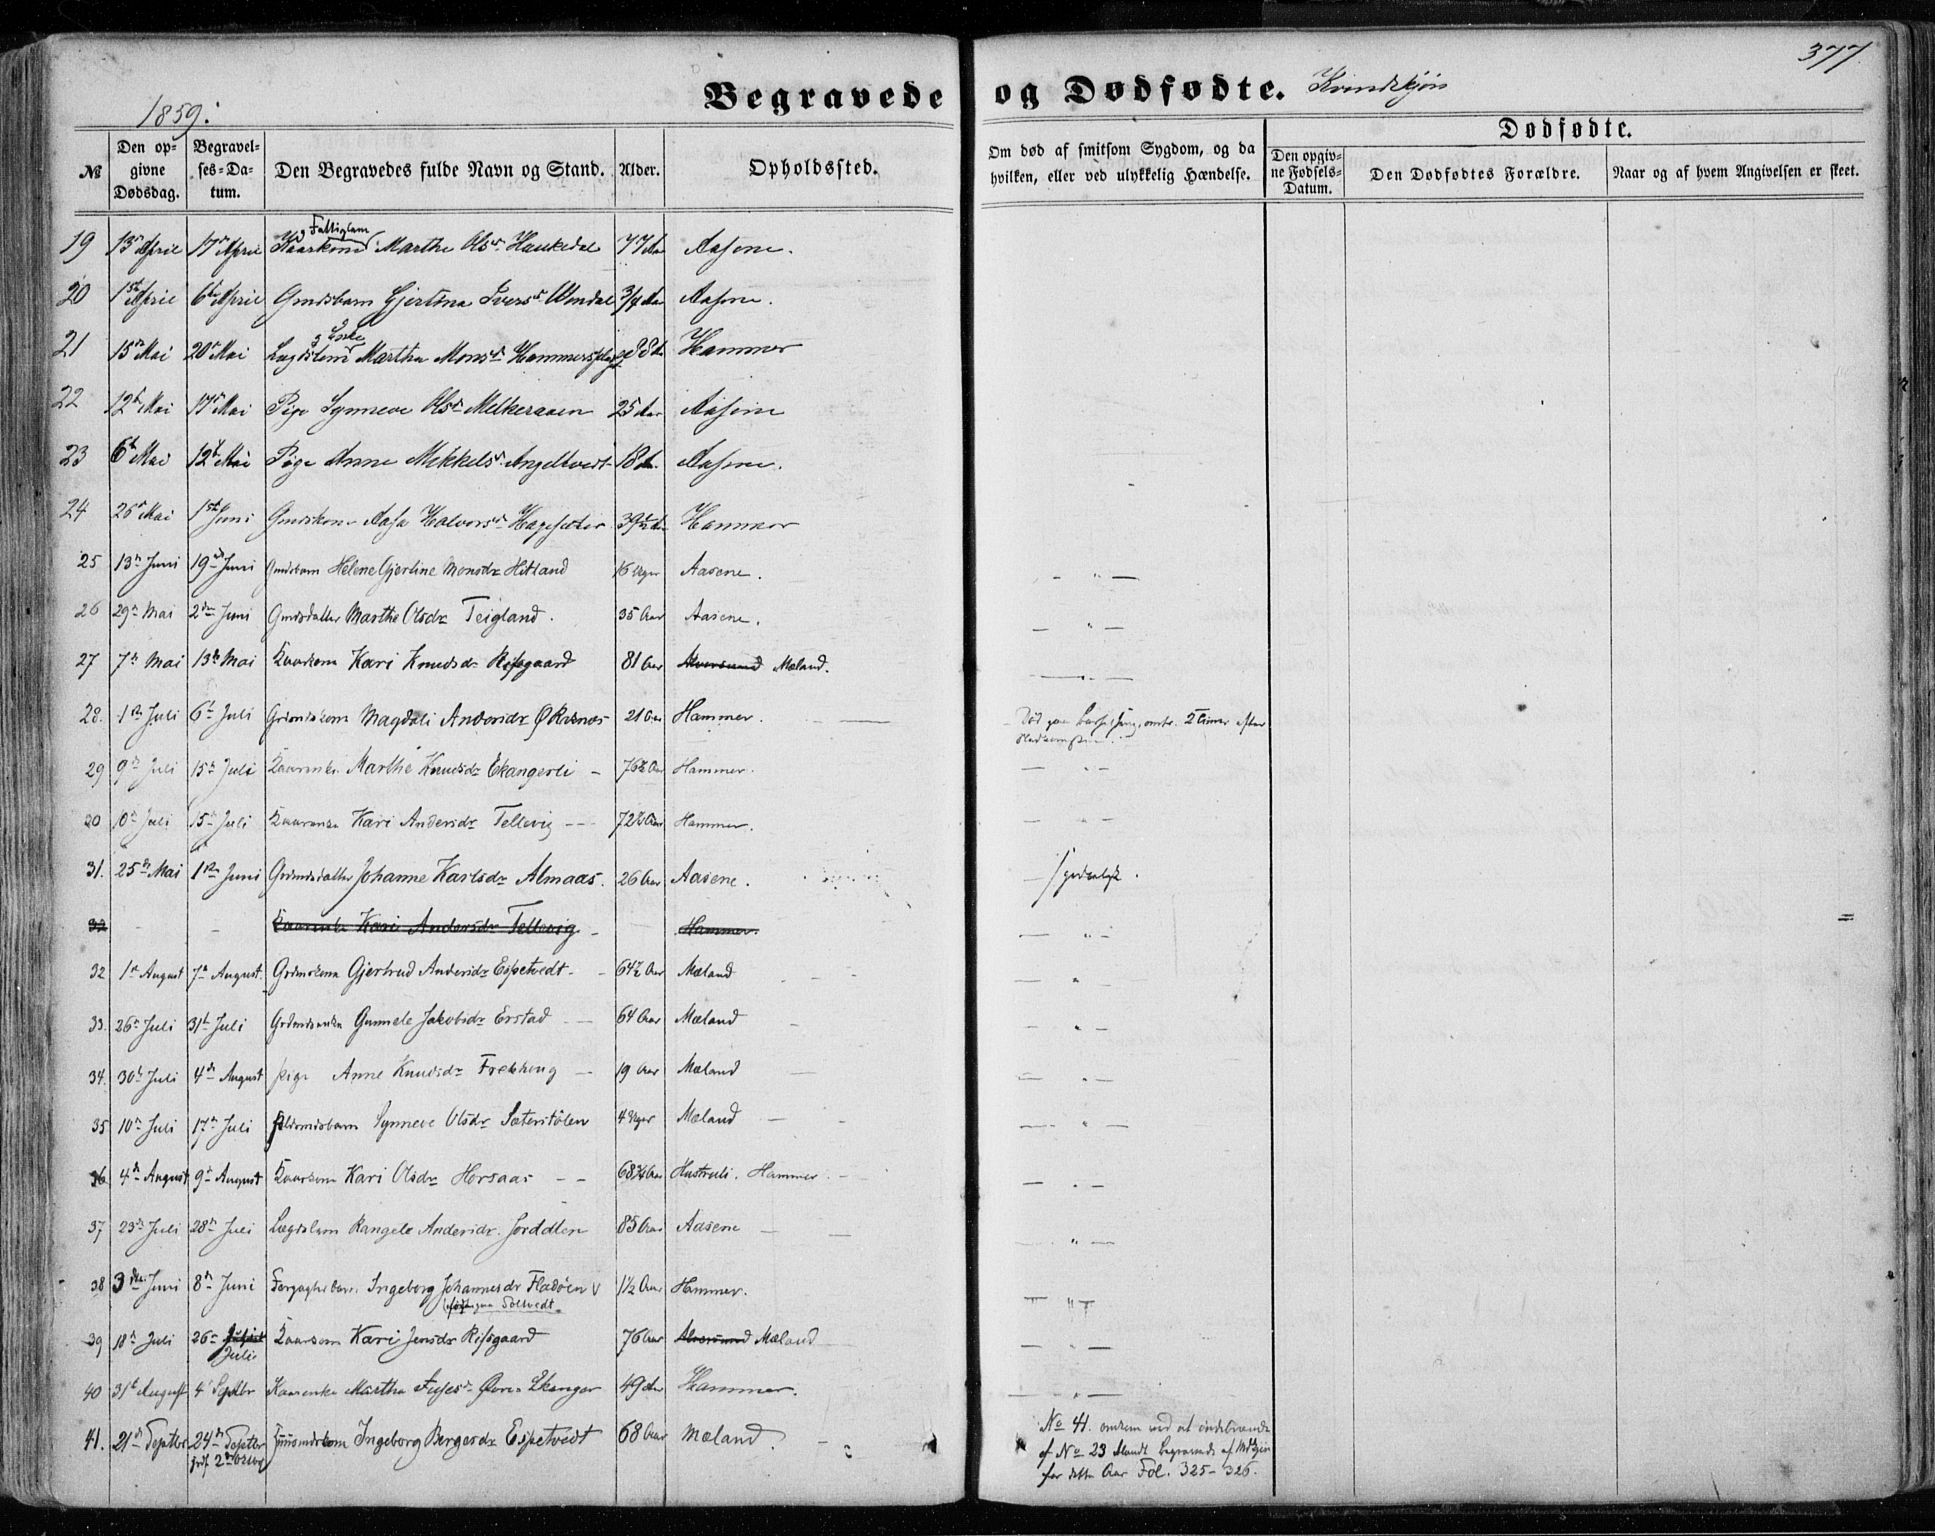 377
1859.
Begravede og Dødfødte. Kvindekjøn
№
Den opgivne Dødsdag.
Begravelses-Datum.
Den Begravedes fulde Navn og Stand.
Alder.
Opholdssted.
Om død af smitsom Sygdom, og da hvilken, eller ved ulykkelig Hændelse.
Dødfødte.
Den opgivne Fødsels-Datum.
Den Dødfødtes Forældre.
Naar og af hvem Angivelsen er skeet.
19 13de April 17de April Kaarkone og Fattiglem Marthe Olsdr Haukedal 77 Aar Aasene.
20 1ste April 6te April Gmdsbarn Gjertina Iversdr 3/4 Aar Aasene.
21 15de Mai 20de Mai Lægdslem og Enke Martha Monsdr 88 Aar Hammer
22 12te Mai 17de Mai Pige Synneve Olsdr Melkeraaen 25 Aar Aasene
23 6te Mai 12te Mai Pige Anne Mikkelsdr Angeltvedt 18 Aar Aasene.
24 26de Mai 1ste Juni Gmdskone Aasa Halvorsdr Hagesæter 39 1/2 Aar Hammer
25 13de Juni 19de Juni Gmdsbarn Helene Gjertine Monsdr Hitland 16 Uger Aasene. — " —
26 29de Mai 2den Juni Gmdsdatter Marthe Olsdr Teigland. 35 Aar Aasene. — " —
27 7de Mai 13de Mai Kaarkone Kari Knudsdr Risgaard 81 Aar Alversund Mæland.
28. 1ste Juli 6te Juli Grdmdskone Magdali Andersdr Øksnæs 21 Aar Hammer. Død paa Barselseng, omtr. 2 Timer efter
29 9de Juli 15de Juli Kaarenke Marthe Knudsdr Ekangerli — 76 1/2 Aar Hammer. — " —
30 10de Juli 15de Juli Kaarenke Kari Andersdr Tellevig — 72 1/2 Aar Hammer. — " —
31. 25de Mai 1ste Juni Grdmdsdatter Johanne Karlsdr Almaas. 26 Aar Aasene.
32 Kaarenke Kari Andersdr Tellevig — Hammer. — " —
32 1ste August 7de August Grdmdskone Gjertrud Andersdr Espetvedt — 64 1/2 Aar Mæland — " —
33. 26de Juli 31te Juli Grdmdsenke Gunnele Jakobsdr Erstad — 64 Aar Mæland — " —
34. 30te Juli 4de August Pige Anne Knudsdr Frekhoug — 19 Aar Mæland — " —
35 10de Juli 17de Juli Synneve Olsdr Sæterstølen 4 Uger Mæland — " —
36 4de August 9de August Kaarkone Kari Olsdr Horsaas — 68 3/4 Aar Hustruli. Hammer. — " —
37 23de Juli 28de Juli Lægdslem Rangele Andersdr. Jorddalen 85 Aar Aasene — " —
38 3die Juni 8de Juni Ingeborg Johannesdr Fladøen 1 1/2 Aar Hammer. — " —
(født paa Toftvedt.
39 18de Juli 26de Juli Kaarkone Kari Jensdr Risgaard 76 Aar Alversund Mæland — " —
40 31te August 4de Septbr Kaarenke Martha Øvre Ekanger 49 Aar Hammer. — " —
41. 21de Septbr 24de Septbr Ingeborg Bergesdr Espetvedt 68 Aar Mæland.
No 41. ved at indebrænde
cf No 23 blandt Begravede af Mdkjøn
for dette Aar Fol. 325–326.